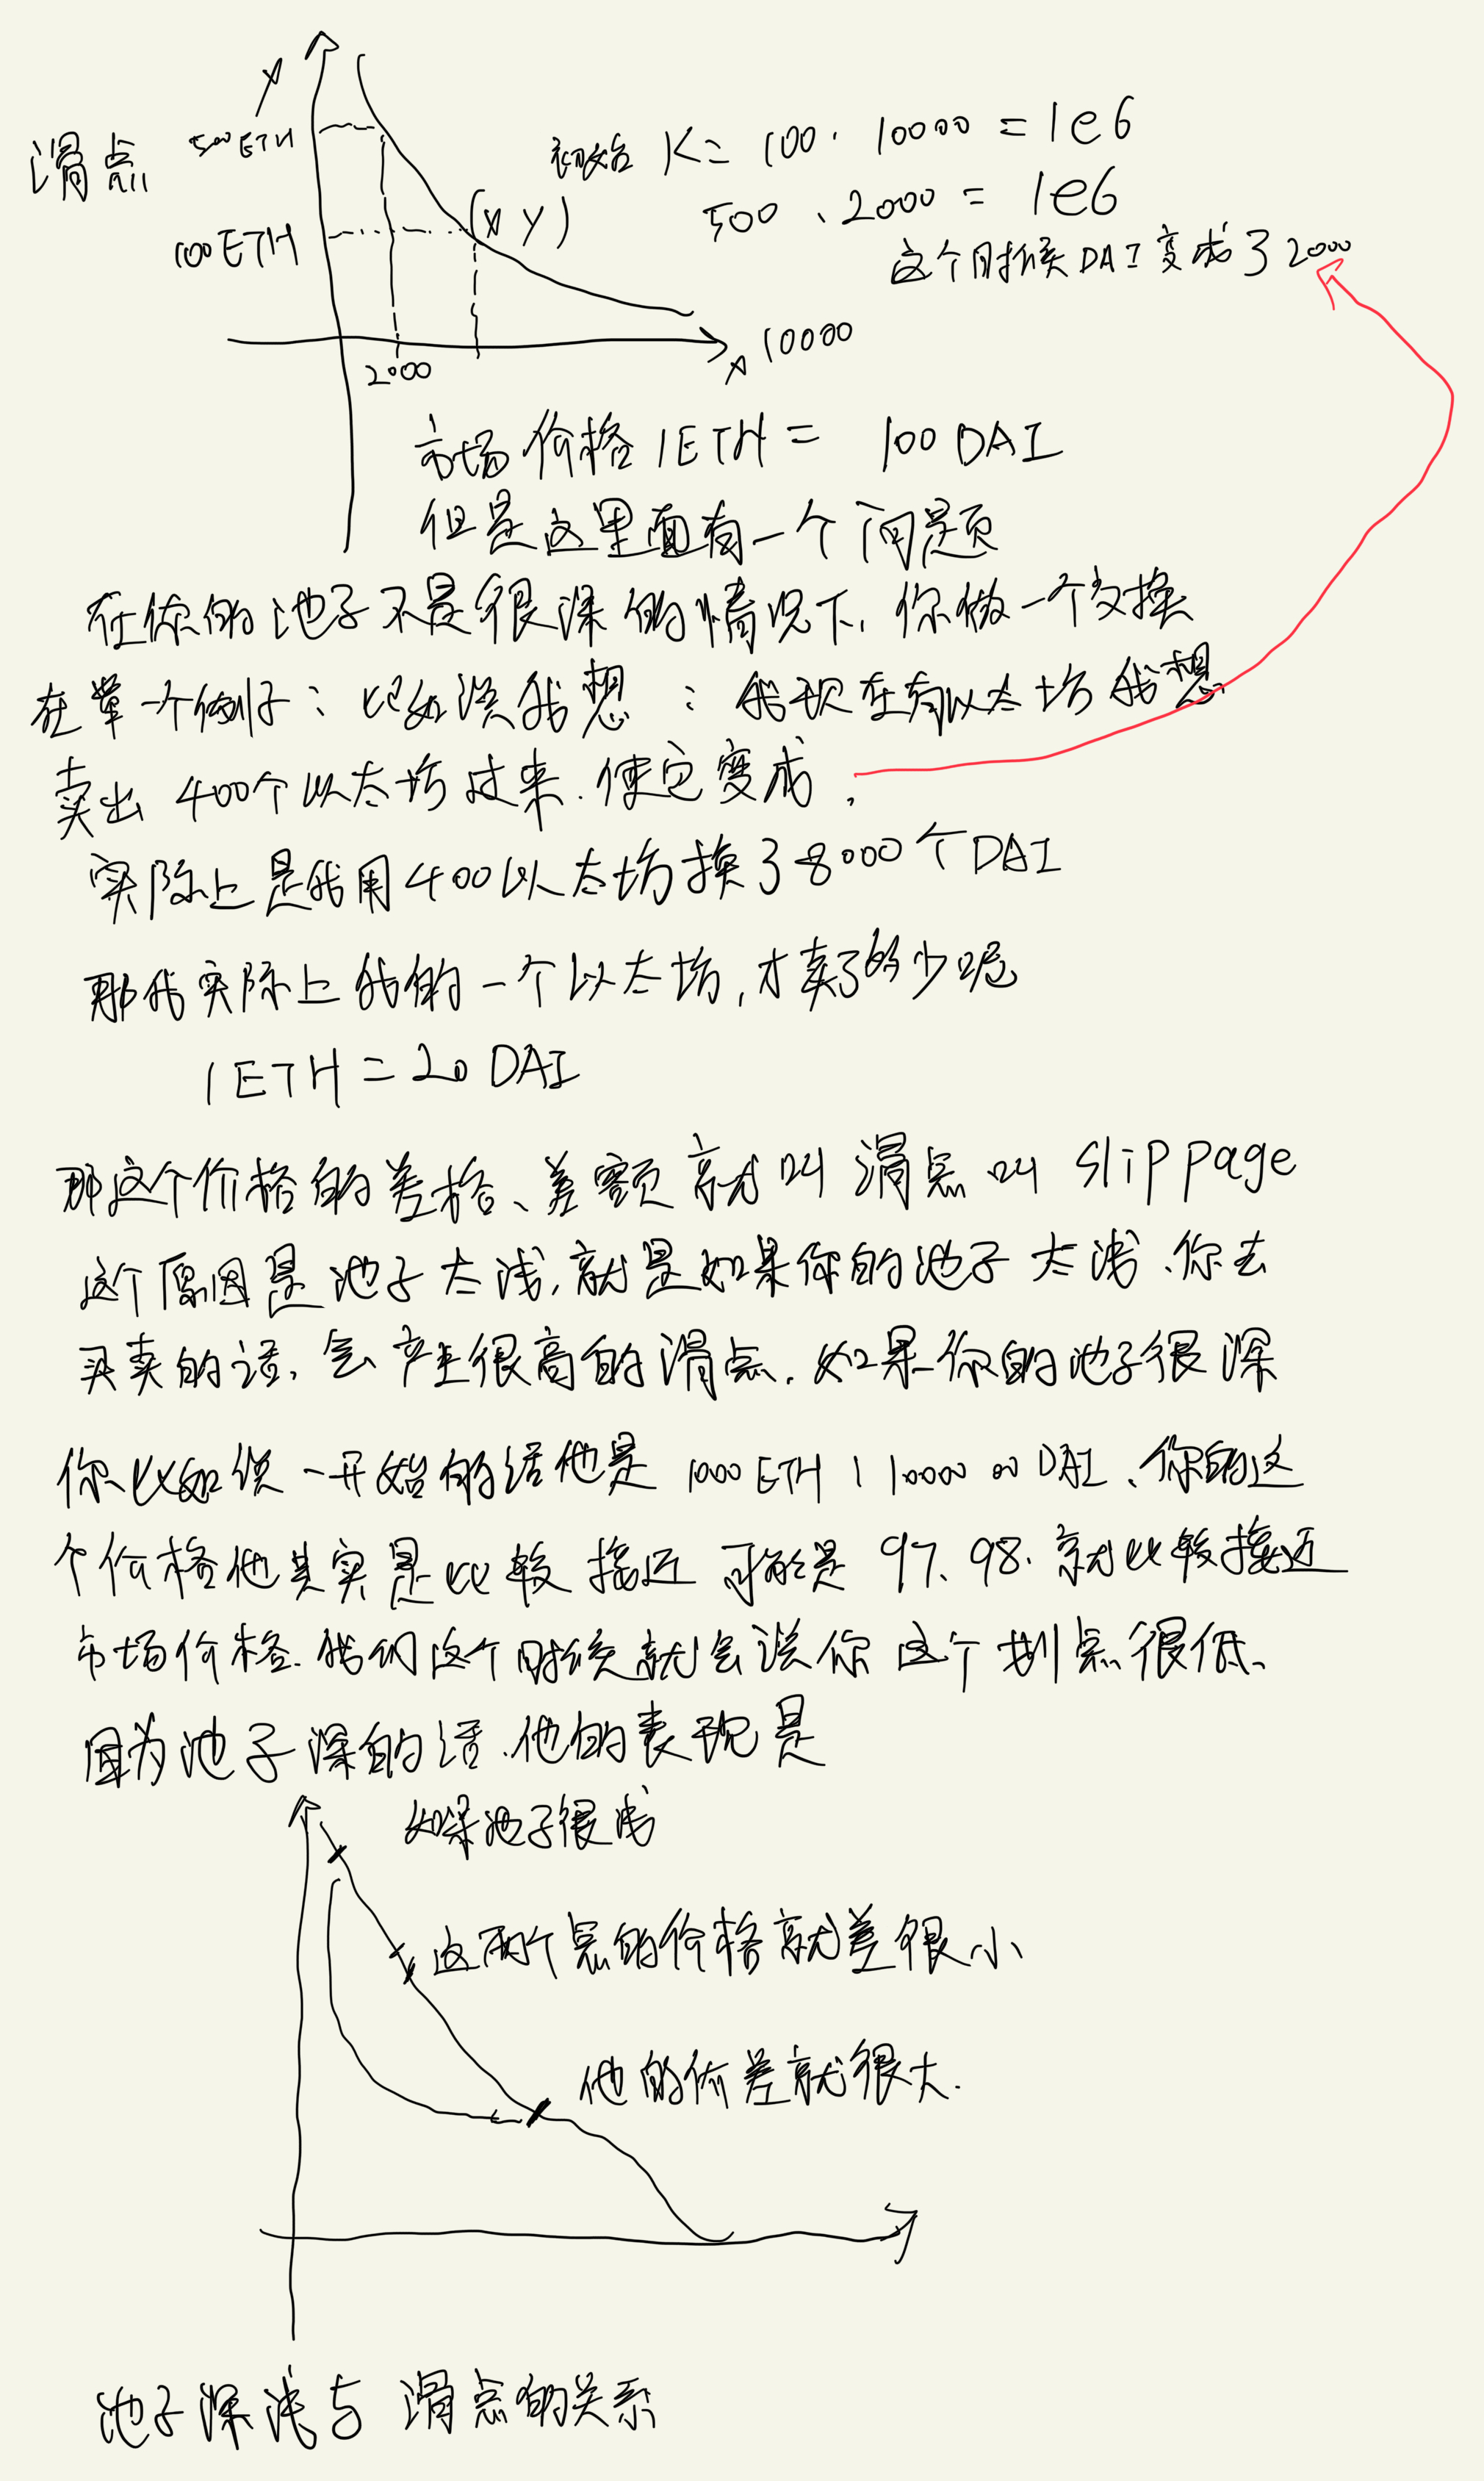 滑点
500 ETH
100 ETH
(x y)
2000
x 10000
初始 K = 100 · 10000 = 1e6
500 、2000 = 1e6
这个时候 DAI 变成了 2000
市场价格 1ETH = 100 DAI
但是这里面有一个问题
在你的池子不是很深的情况下, 你做一个交换
在举一个例子: 比如说我想: 我现在有以太坊 我想
卖出 400个以太坊过来. 使它变成,
实际上是我用 400 以太坊换了 8000个 DAI
那我实际上我的一个以太坊, 才卖了多少呢
1 ETH = 20 DAI
那这个价格的差格、差额就叫滑点叫 slippage
这个原因是池子太浅, 就是如果你的池子太浅、你去
买卖的话, 会产生很高的滑点. 如果你的池子很深
你比如说一开始的话他是 1000 ETH 1 10000 00 DAI、你的这
个价格他其实是比较接近 可能是 97、98. 就比较接近
市场价格. 我们这个时候就会说你这个划点很低、
因为池子深的话. 他的表现是
如果池子很浅
这两个点的价格就差很小
他的价差就很大.
池子深浅与滑点的关系